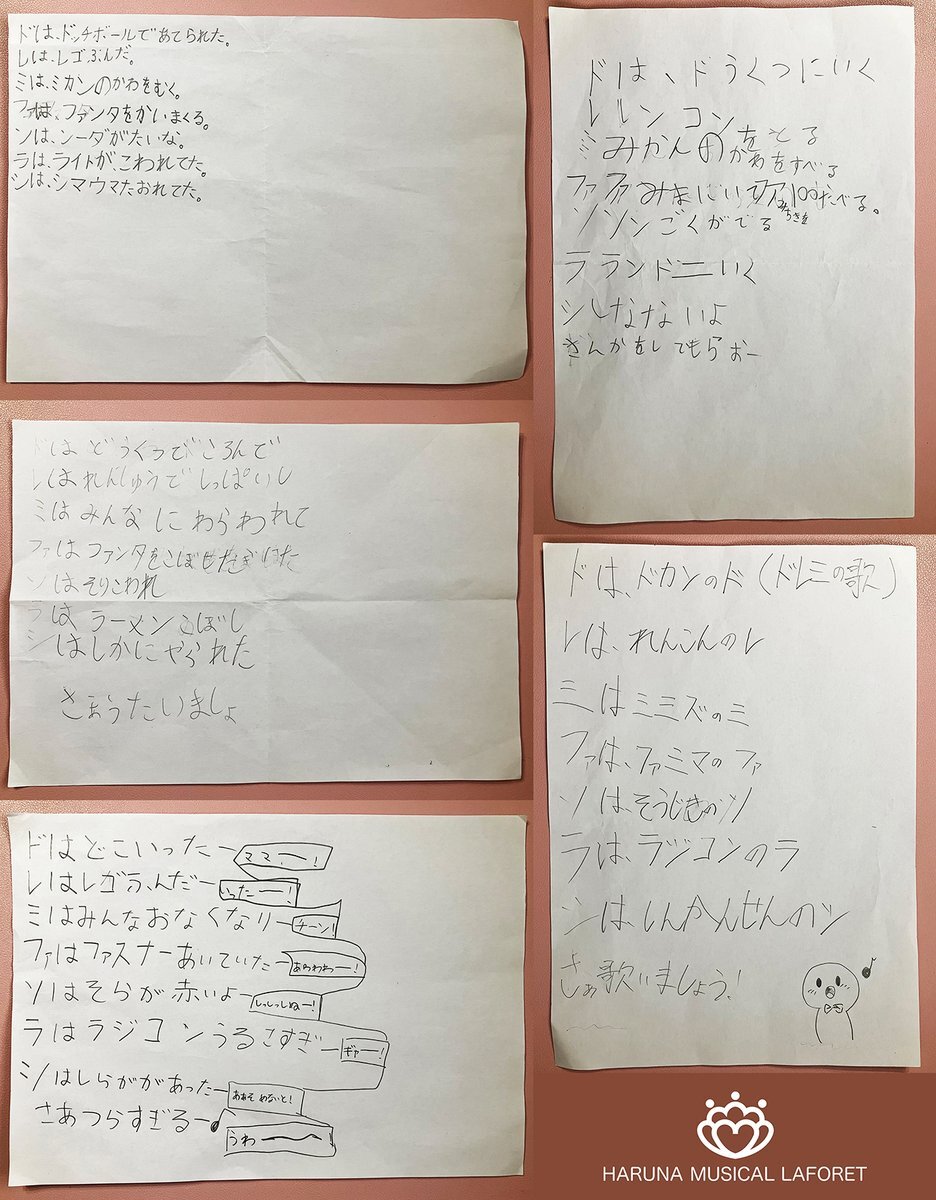 ドは、ドッチボールであてられた。
レは、レゴふんだ。
ミは、ミカンのかわをむく。
ファは、ファンタをかいまくる。
ソは、ソーダがたいな。
ラは、ライトが、こわれてた。
シは、シマウマたおれてた。
ドはどうくつでころんで
レはれんしゅうでしっぱいし
ミはみんなにわらわれて
ファはファンタをこぼ
ソはそりこわれ
ラはラーメンこぼし
シはしかにやられた
さぁうたいましょ
ドはどこいったー ママー!
レはレゴふんだー いったー!
ミはみんなおなくなりー チーン!
ファはファスナーあいていたー あらわわー!
ソはそらが赤いよー しっしっしぬー!
ラはラジコンうるさすぎー ギャー!
シはしらががあったー めないと!
さあつらすぎるー♪ うわー
ドは、ドうくつにいく
レレンコン
をとる
ミみかんのかわをすべる
ファファみまにいって 100こたべる。
ソソンごくがでる
ラランドニいく
シしなないよ
さんかをしてもらおー
ドは、ドカンのド(ドレミの歌)
レは、れんこんのレ
ミはミミズのミ
ファは、ファミマのファ
ソは、そうじきのソ
ラは、ラジコンのラ
シは、しんかんせんのシ
さぁ歌いましょう!
HARUNA MUSICAL LAFORET